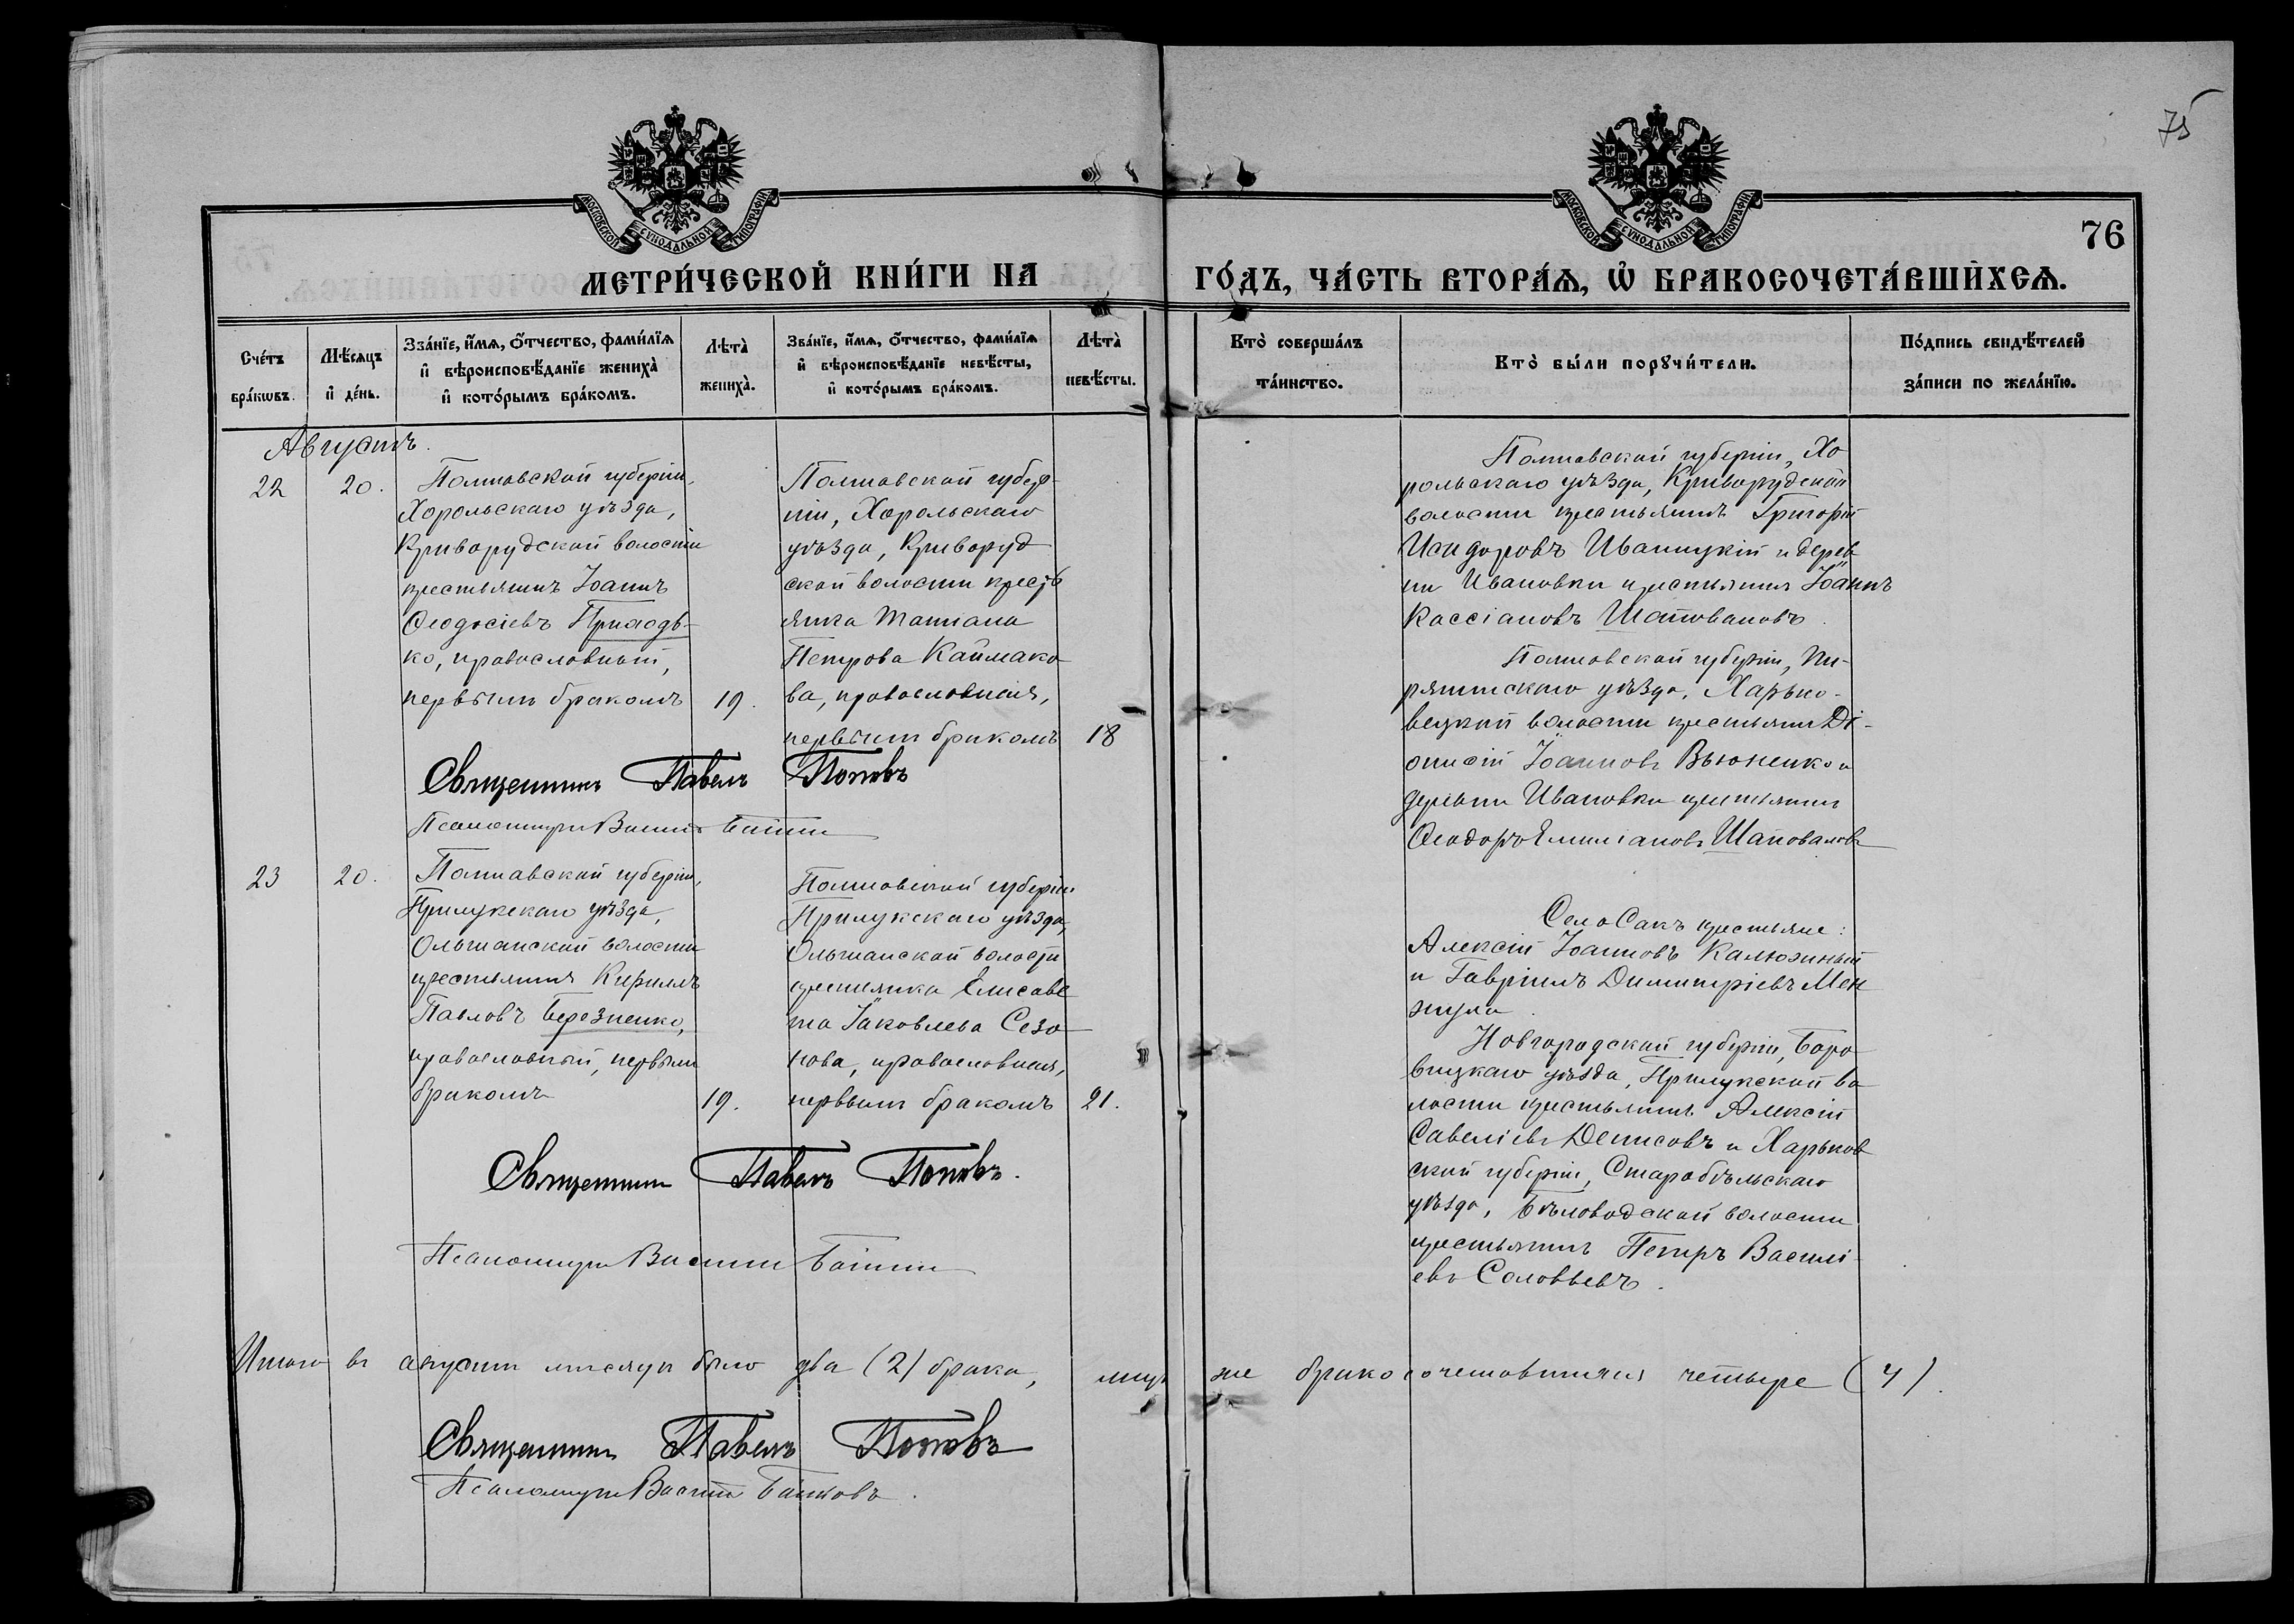 75
76
МОСКОВСКОЙ СѴНОДАЛЬНОЙ ТИПОГРАФІИ
МОСКОВСКОЙ СѴНОДАЛЬНОЙ ТИПОГРАФІИ
МЕТРИ́ЧЕСКОЙ КНИ́ГИ НА
ГО́ДЪ, ЧА́СТЬ ВТОРА́Ѧ, Ѡ҆ БРАКОСОЧЕТА́ВШИХСѦ.
Сче́тъ
бра́кѡвъ.
Мѣ́сѧцъ
и҆ де́нь.
Зва́нїе, и҆́мѧ, ѻ҆́тчество, фами́лїѧ
и҆ вѣроисповѣ́данїе жениха̀
и҆ кото́рымъ бра́комъ.
Лѣта̀
жениха̀.
Зва́нїе, и҆́мѧ, ѻ҆́тчество, фами́лїѧ
и҆ вѣроисповѣ́данїе невѣ́сты,
и҆ кото́рымъ бра́комъ.
Лѣта̀
невѣ́сты.
Кто̀ соверша́лъ
та́инство.
Кто̀ бы́ли порꙋчи́тели.
По́дпись свидѣ́телей
за́писи по жела́нїю.
Августъ.
22
20.
Полтавской губерніи,
Хорольскаго уѣзда,
Криворудской волости
крестьянинъ Іоаннъ
Ѳеодосіевъ Приходь-
ко, православный,
первымъ бракомъ
19.
Полтавской губер-
ніи, Хорольскаго
уѣзда, Криворуд
ской волости кресть
янка Татіана
Петрова Каймако
ва, православная,
первымъ бракомъ
18
Полтавской губерніи, Хо
рольскаго уѣзда, Криворудской
волости крестьянинъ Григорій
Исидоровъ Иваницкій и дерев
ни Ивановки крестьянинъ Іоаннъ
Кассіановъ Шаповаловъ.
Полтавской губерніи, Пи-
рятинскаго уѣзда, Харько-
вецкой волости крестьянинъ Ді-
онисій Іоанновъ Вьюненко и
деревни Ивановки крестьянинъ
Ѳеодоръ Емиліановъ Шаповаловъ
Священникъ Павелъ Поповъ
Псаломщикъ Василій
23
20.
Полтавской губерніи,
Прилукскаго уѣзда,
Ольшанской волости
крестьянинъ Кириллъ
Павловъ Березненко,
православный, первымъ
бракомъ
19.
Полтавской губерніи
Прилукскаго уѣзда,
Ольшанской волости
крестьянка Елисаве
та Іаковлева Сезо
нова, православная,
первымъ бракомъ
21.
Села Сакъ крестьяне:
Алексій Іоанновъ Калюжный
и Гавріилъ Димитріевъ Мен
жула.
Новгородской губерніи, Боро
вицкаго уѣзда, Прилукской во
лости крестьянинъ Алексій
Савеліевъ Денисовъ и Харьков
ской губерніи, Старобѣльскаго
уѣзда, Бѣловодской волости
крестьянинъ Петръ Василі-
евъ Соловьевъ.
Священникъ Павелъ Поповъ.
Псаломщикъ Василій
Итого въ августѣ мѣсяцѣ было два (2) брака, лицъ же бракосочетавшихся четыре (4).
Священникъ Павелъ Поповъ
Псаломщикъ Василій